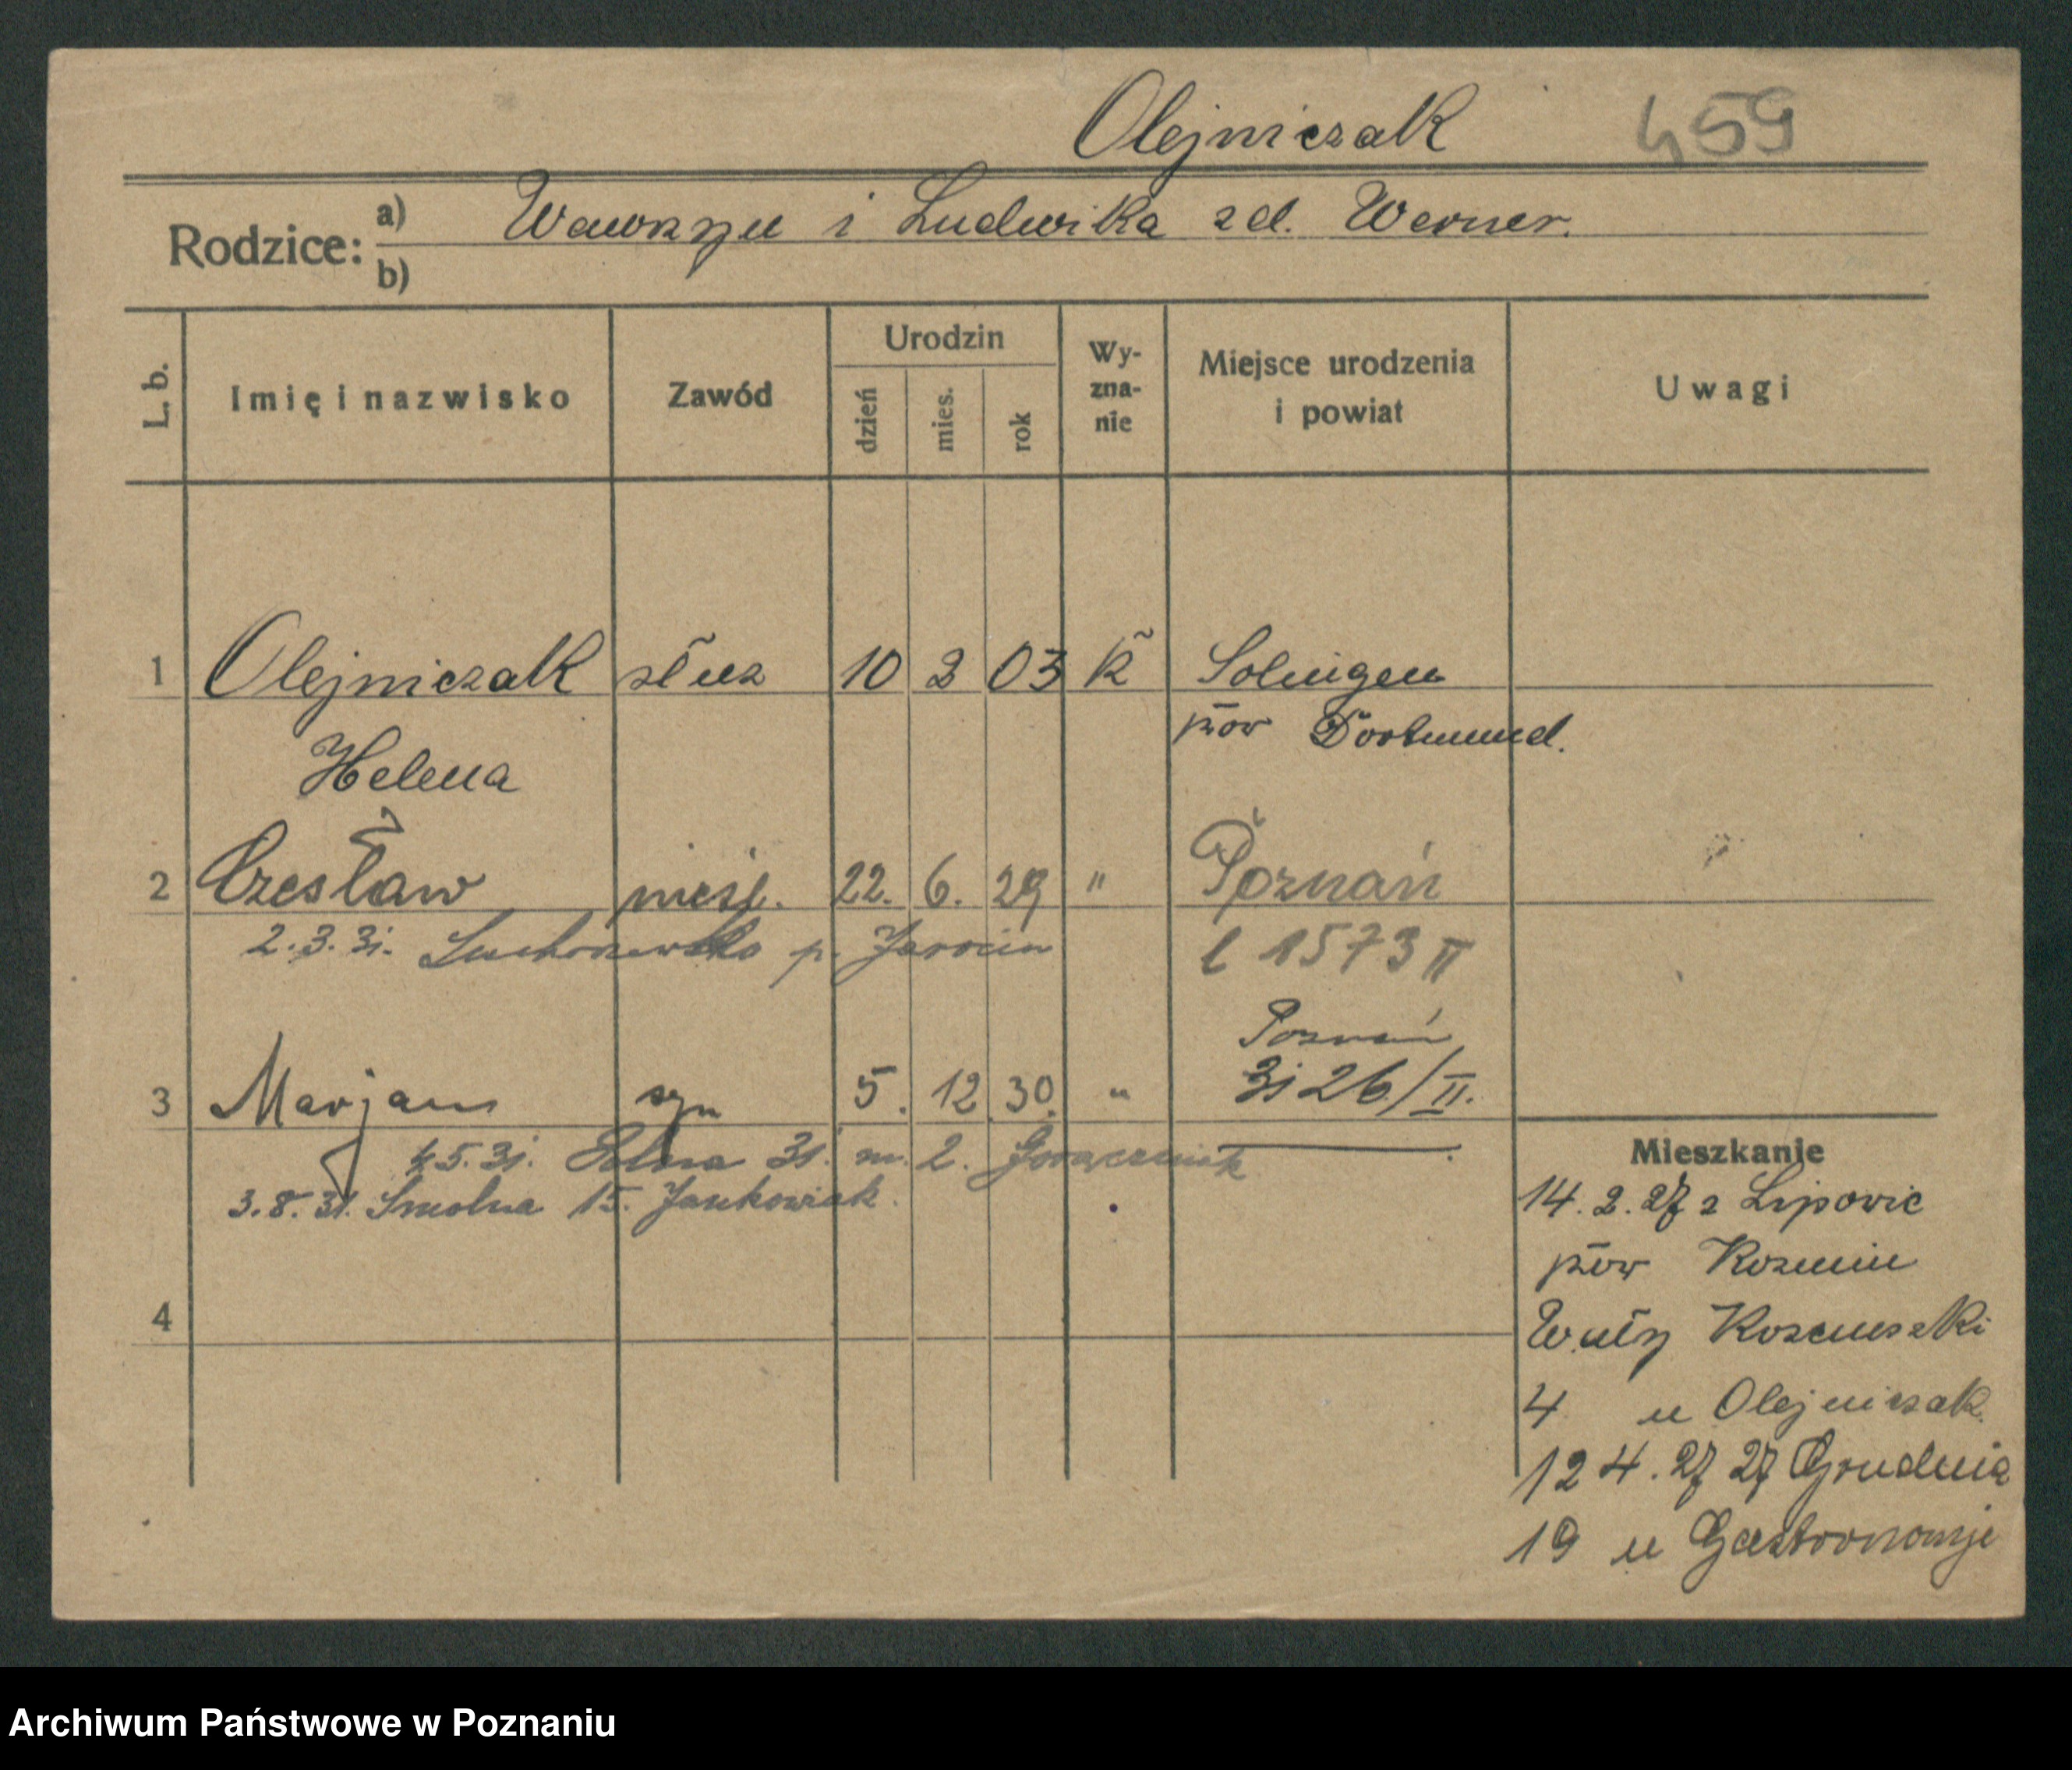 Olejniczak 459
Rodzice: a) Wawrzyn i Ludwika zd. Werner.
b)
L. b. Imię i nazwisko Zawód Urodzin dzień mies. rok Wyznanie Miejsce urodzenia i powiat Uwagi
1 Olejniczak słuz 10 2 03 k Solingen
pow Dortmund.
Helena
2 Czesław nieśl. 22. 6. 29 " Poznań
l 1573 II
2.3.31. p. Jarocin
Poznań
3 Marjan syn 5. 12 30. " 31 26/II.
4.5.31. 31. m. 2.
3.8.31. Smolna 15. Jankowiak.
4
Mieszkanie
14.2.27 z Lipowic
pow Kozmin
Wały Kosciuszki
4 u Olejniczak
12 4. 27 27 Grudnia
19 u Gastronomji
Archiwum Państwowe w Poznaniu